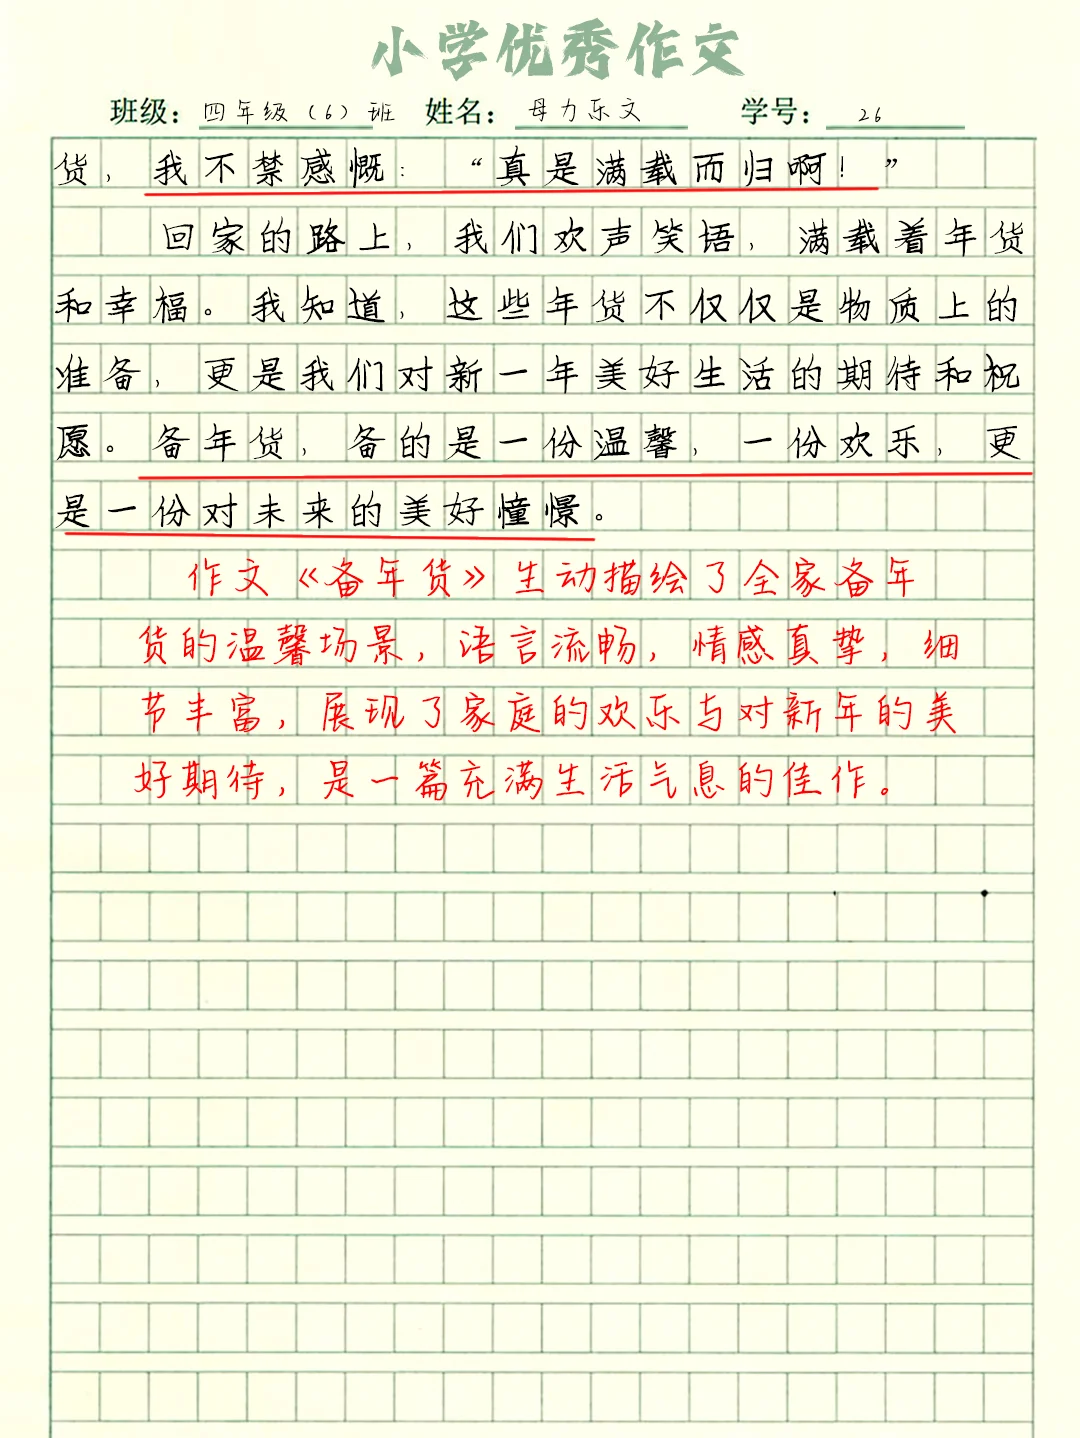 小学优秀作文
班级：四年级（6）班 姓名：母力乐文 学号：26
货，我不禁感慨：“真是满载而归啊！”
回家的路上，我们欢声笑语，满载着年货
和幸福。我知道，这些年货不仅仅是物质上的
准备，更是我们对新一年美好生活的期待和祝
愿。备年货，备的是一份温馨，一份欢乐，更
是一份对未来的美好憧憬。
作文《备年货》生动描绘了全家备年
货的温馨场景，语言流畅，情感真挚，细
节丰富，展现了家庭的欢乐与对新年的美
好期待，是一篇充满生活气息的佳作。